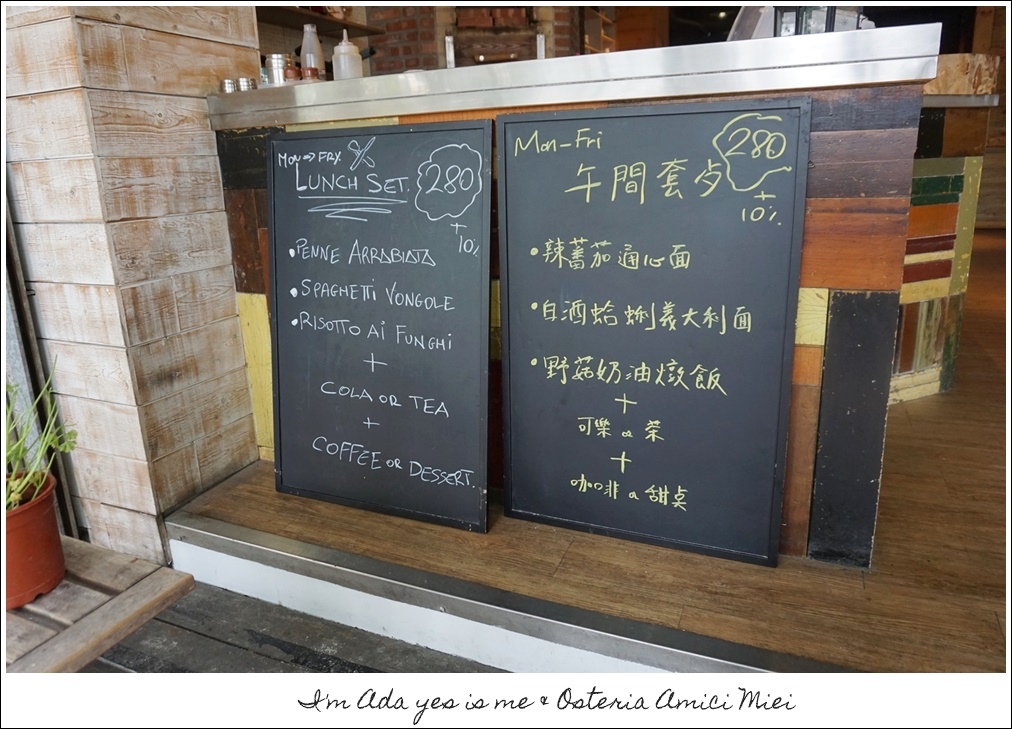 MON => FRY.
LUNCH SET.
280
+
10%
• PENNE ARRABIATA
• SPAGHETTI VONGOLE
• RISOTTO AI FUNGHI
+
COLA OR TEA
+
COFFEE OR DESSERT.
Mon-Fri
280
午間套歺
+
10%
• 辣蕃茄通心面
• 白酒蛤蜊義大利面
• 野菇奶油燉飯
+
可樂 or 茶
+
咖啡 or 甜桌
I'm Ada yes is me & Osteria Amici Miei